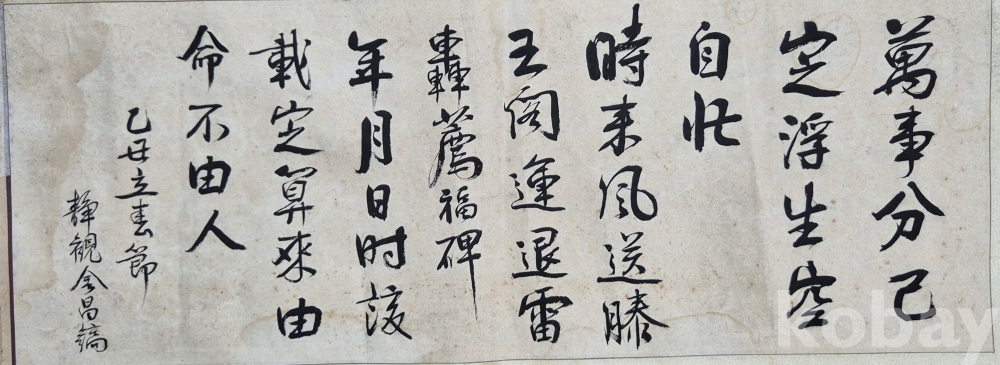 萬事分已
定浮生空
自忙
時来风送滕
王阁運退雷
轟薦福碑
年月日时該
載定算來由
命不由人
乙丑立春節
靜觀金昌鎬
kobay